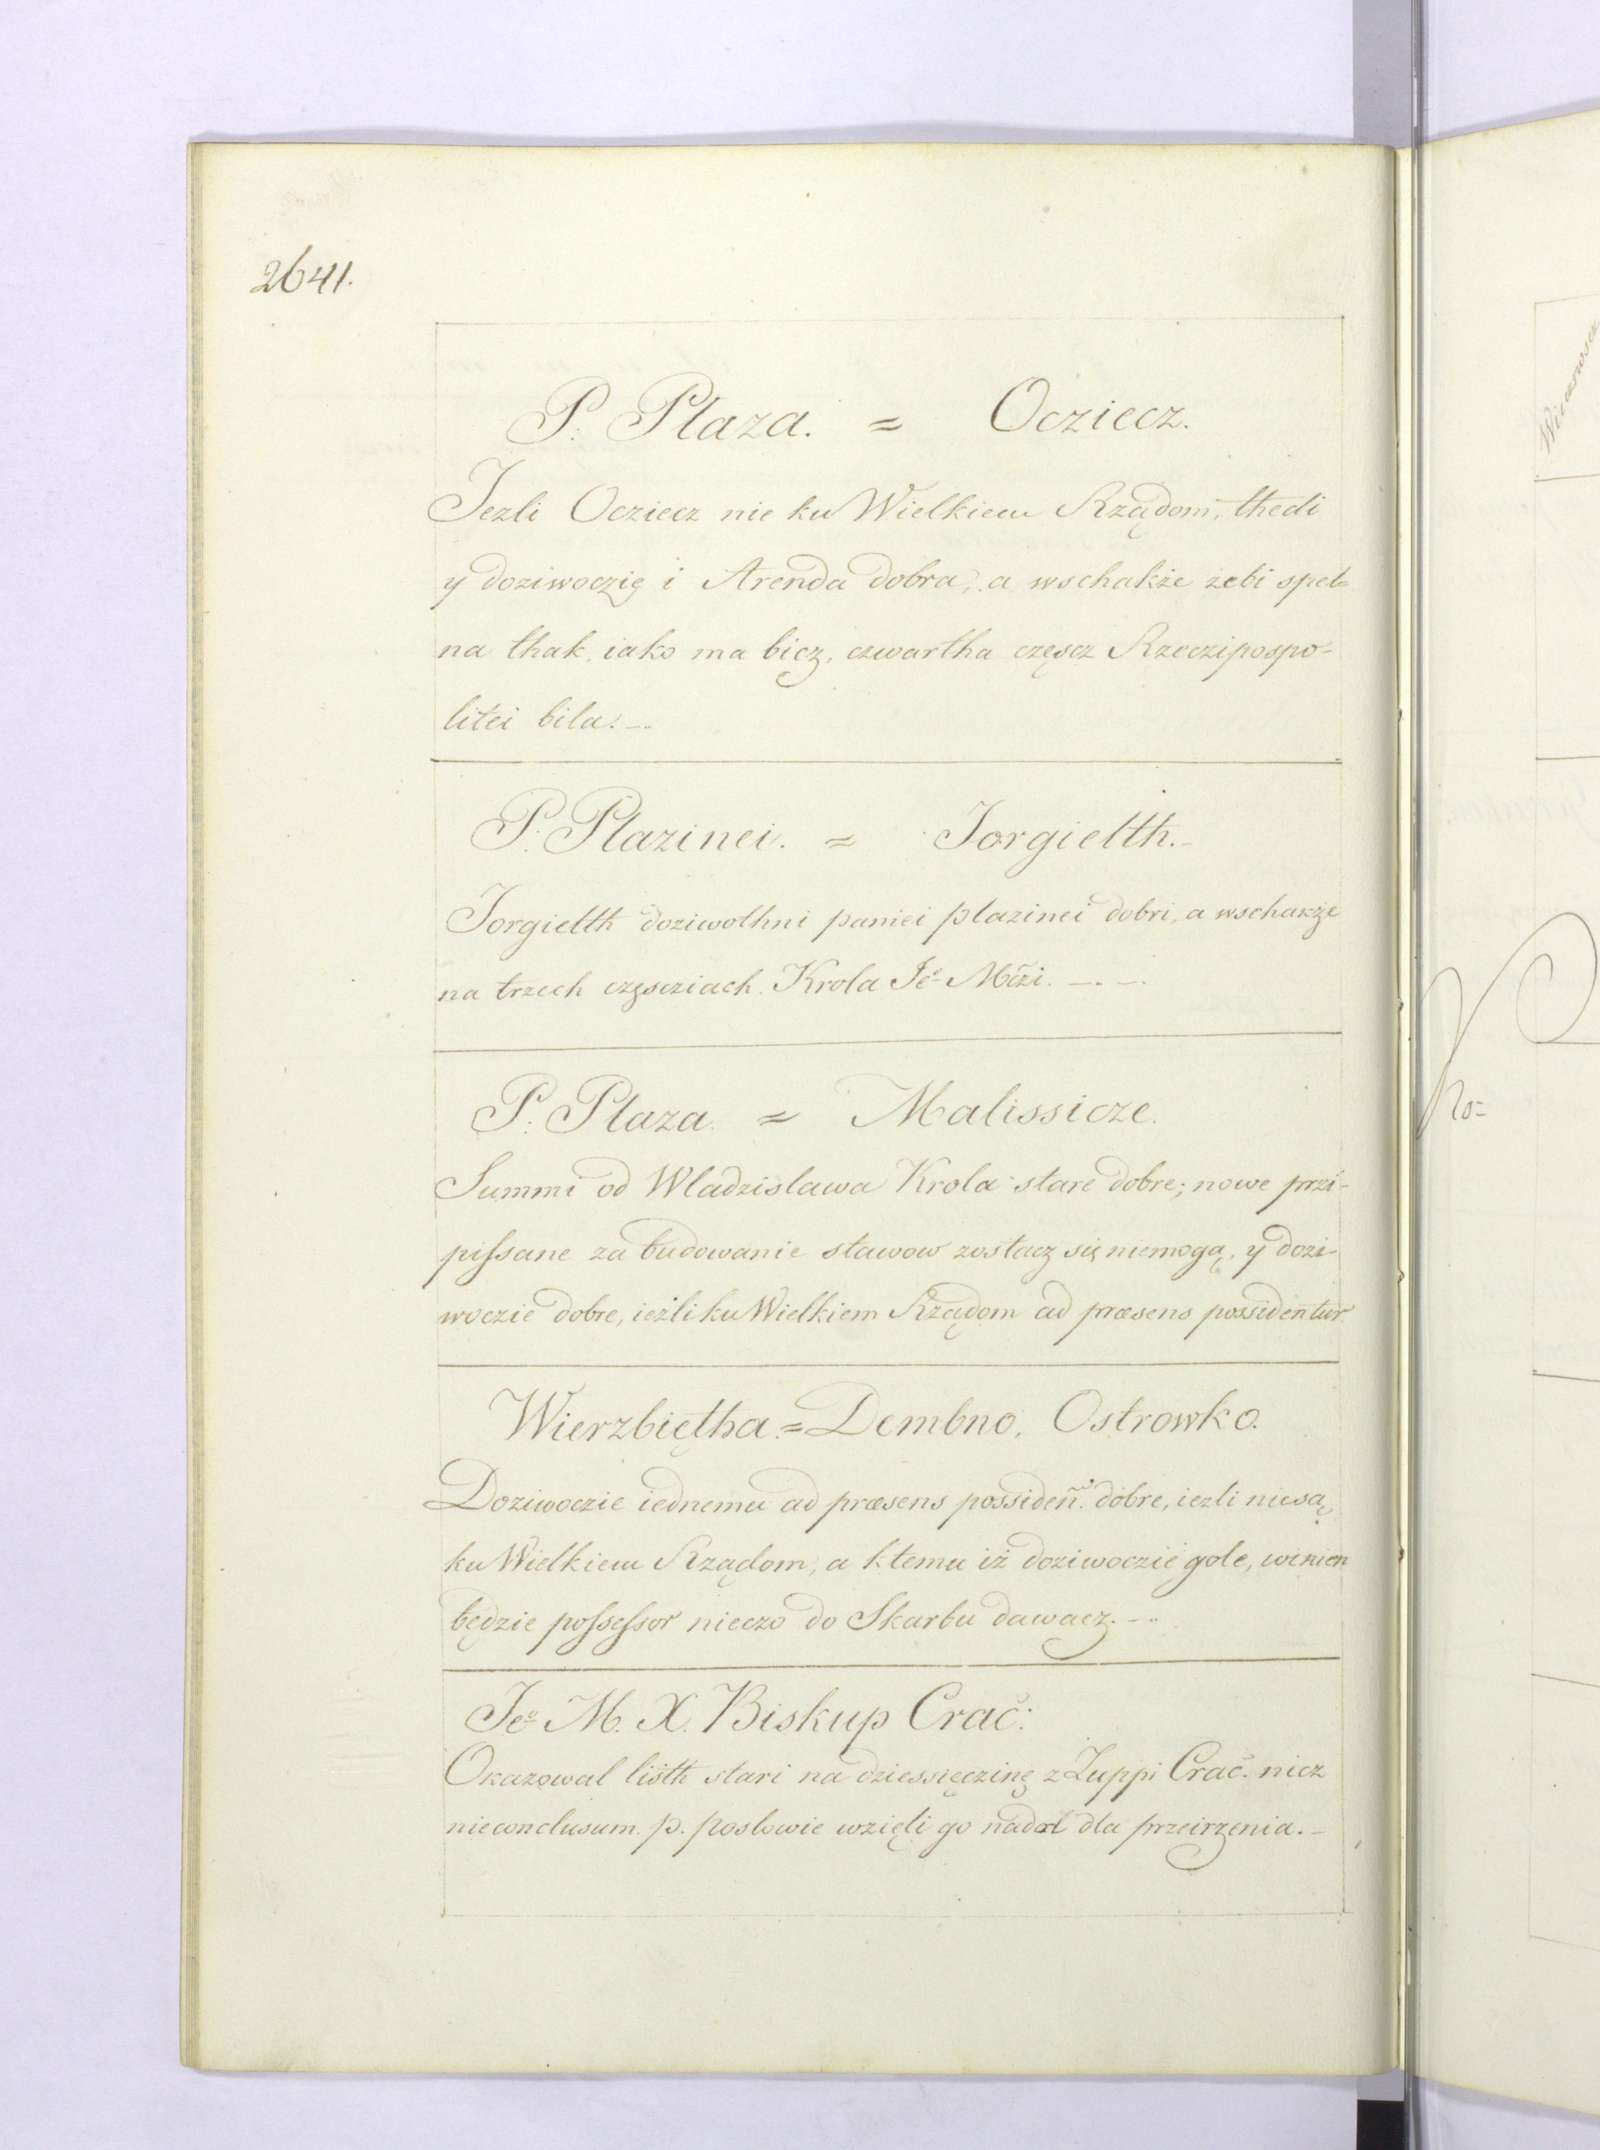 2641.
P. Plaza. = Ocziecz.
Jezli Ocziecz nie ku Wielkiem Rządom, thedi
y doziwoczię i Arenda dobra, a wschakże żebi speł-
na thak, iako ma bicz, czwartha częscz Rzeczipospo-
litei bila. —
P. Plazinei. = Jorgielth.
Jorgielth doziwothni paniei plazinei dobri, a wschakże
na trzech częscziach Krola Jeº Mczi. —. —.
P. Plaza = Malissicze.
Summi od Wladzislawa Krola stare dobre; nowe przi-
pissane za budowanie stawow zostacz się niemogą, y dozi-
woczie dobre, ieżli ku Wielkiem Rządom ad præsens possidentur
Wierzbiętha. = Dembno, Ostrowko.
Doziwoczie iednemu ad præsens possideñ. dobre, iezli niesą
ku Wielkiem Rządom, a ktemu iż doziwoczié gole, winien
będzie possessor nieczo do Skarbu dawacz. —
Jeº M. X. Biskup Crac:
Okazowal listh stari na dziessięczinę z Zuppi Crac. nicz
nieconclusum. p. posłowie wzięli go nadal dla przeirzenia. —